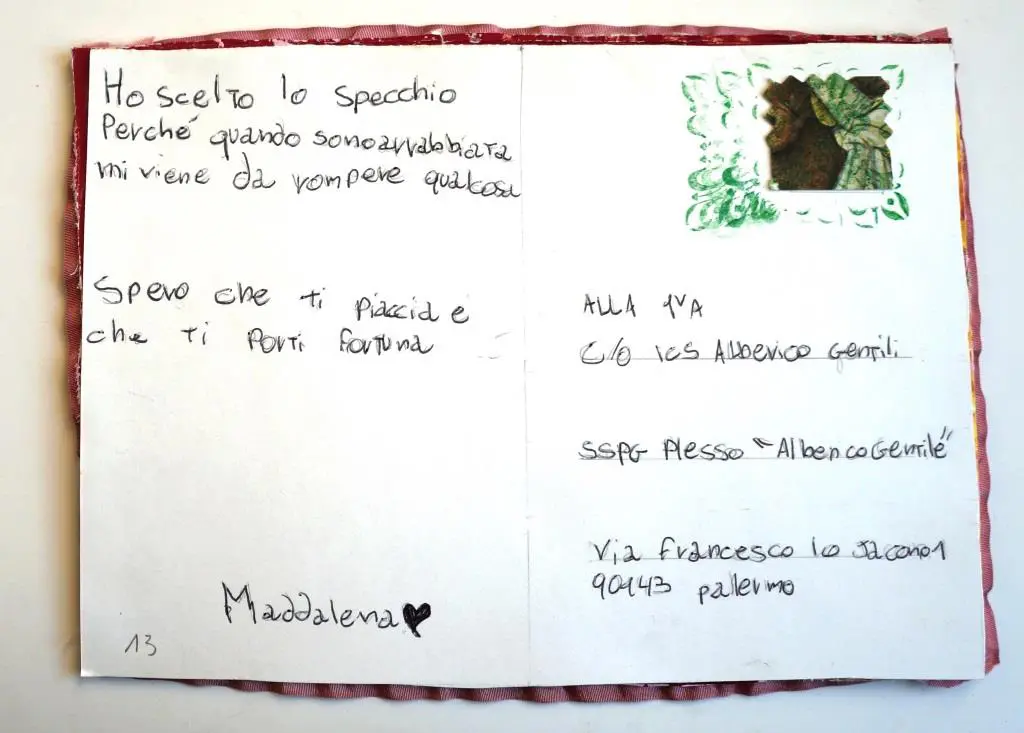 Ho scelto lo specchio
Perché quando sono arrabbiata
mi viene da rompere qualcosa
Spero che ti piaccia e
che ti porti fortuna
Maddalena
13
ALLA 1ªA
C/O ICS Alberico Gentili
SSPG Plesso "Alberico Gentile"
Via Francesco lo Jacono 1
90143 palermo